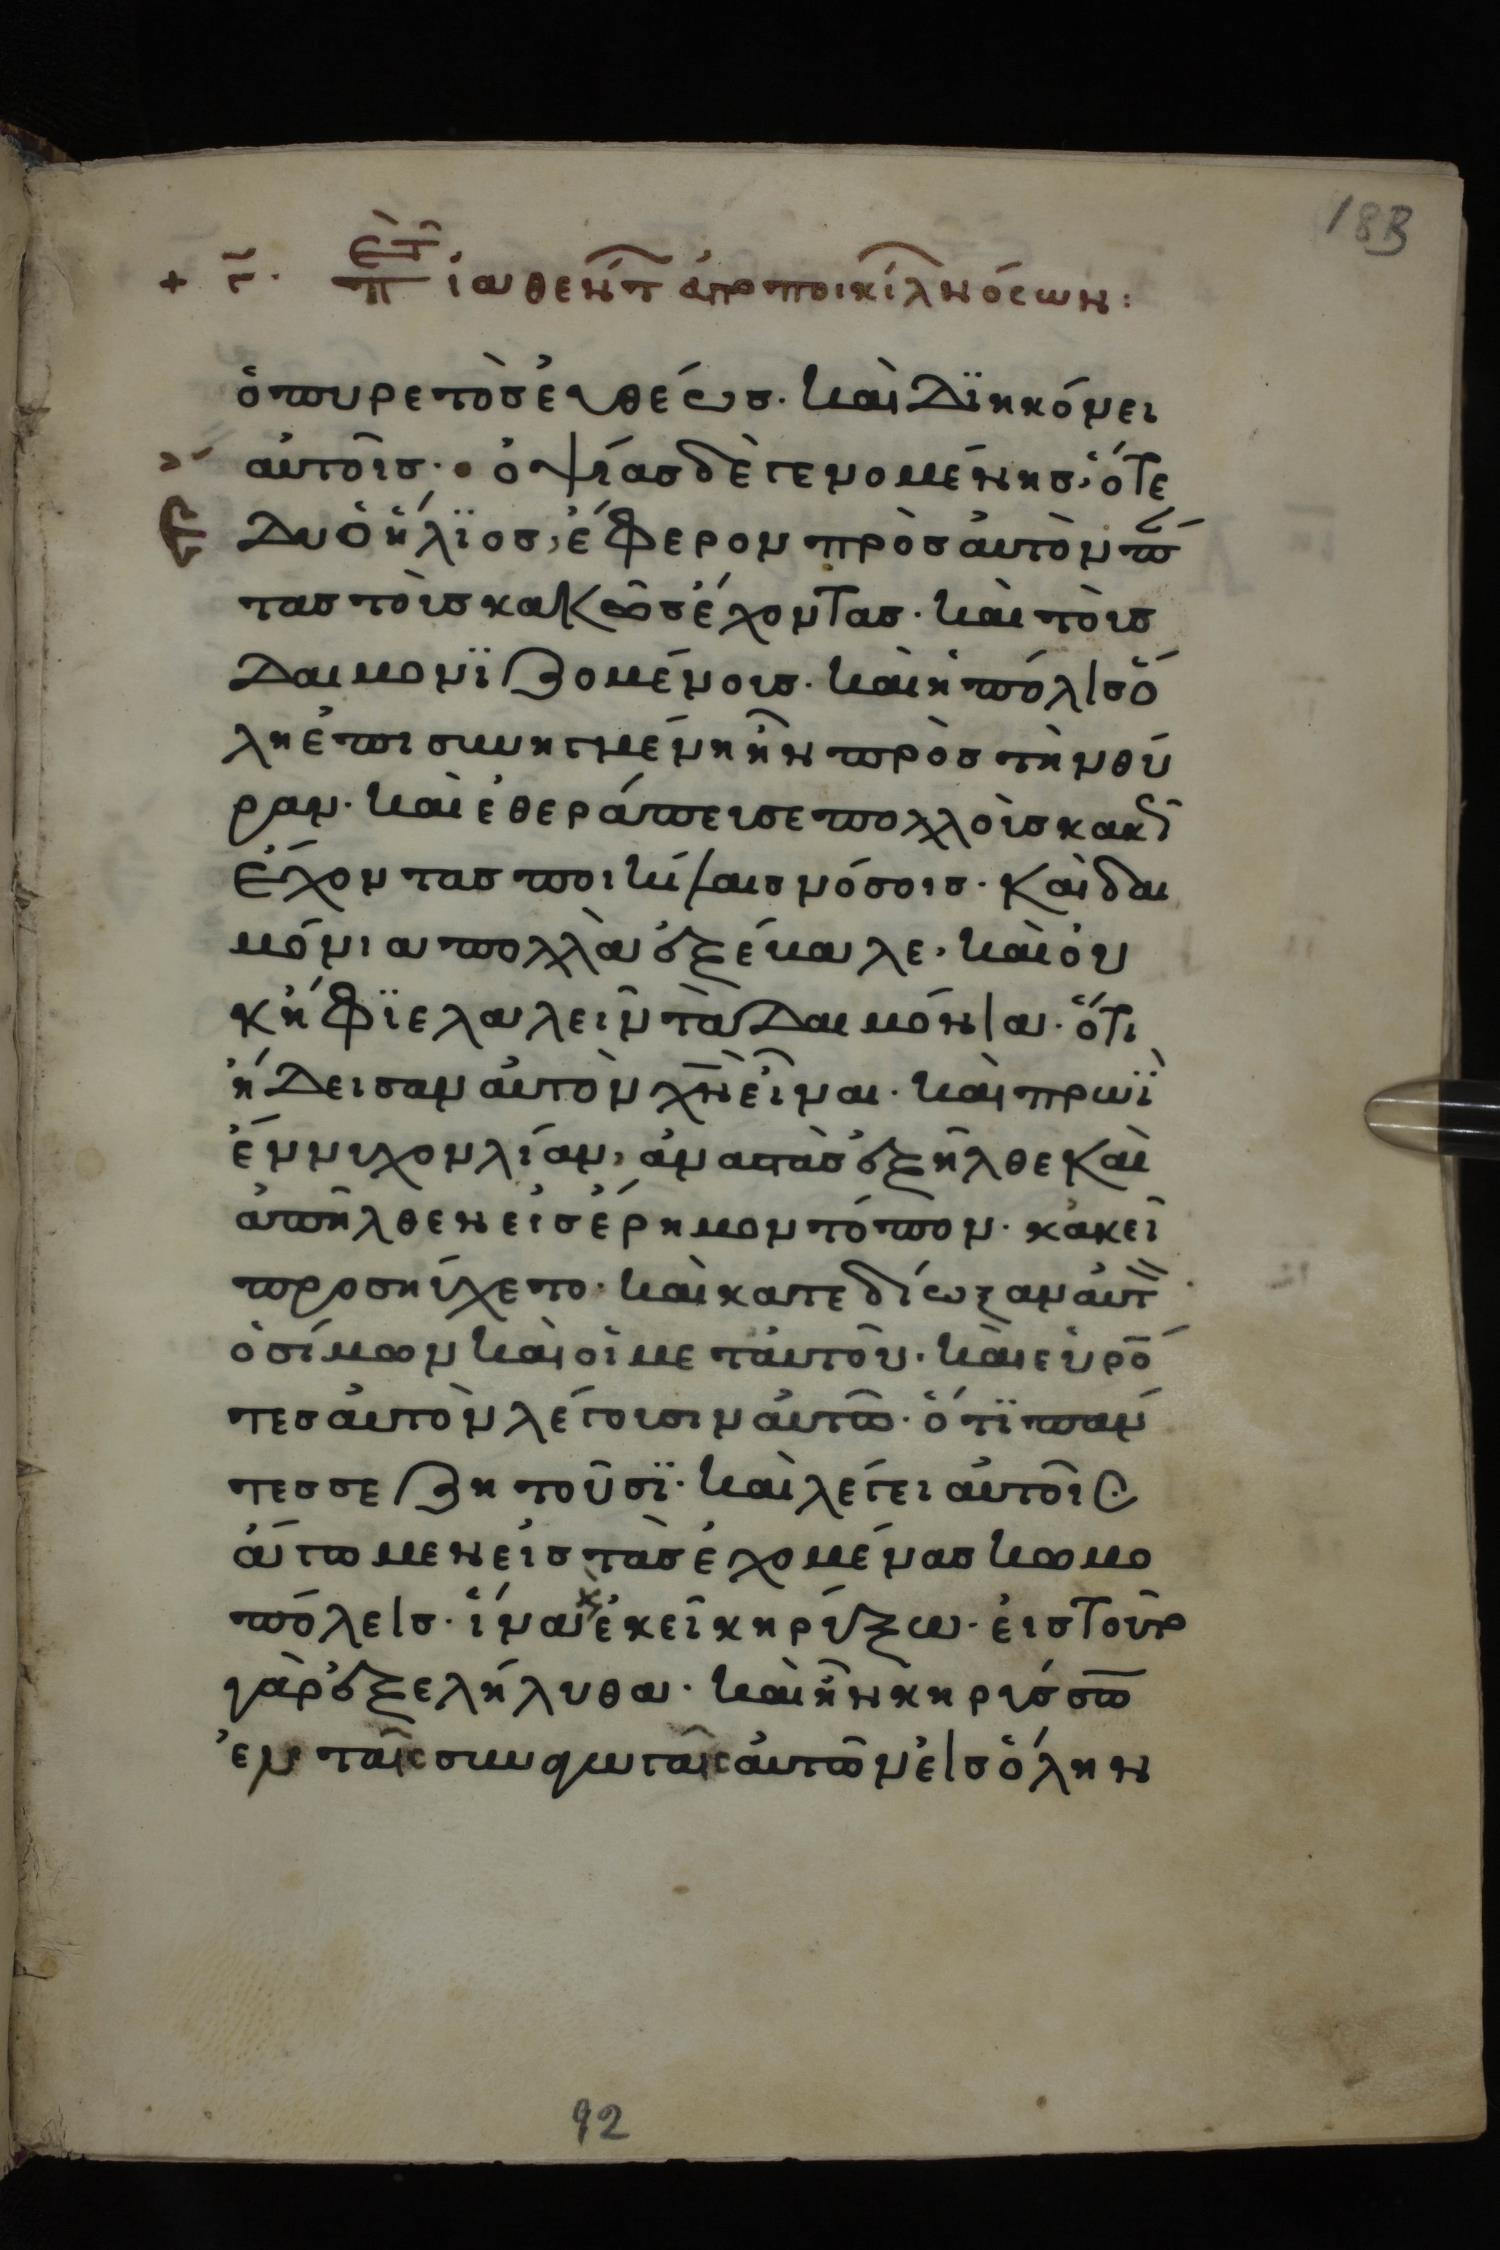 18B
+ γ̄. περὶ ἰαθέντ ἀπο ποικίλ νόσων:
ὁ πυρετὸσ ἐυθέωσ. καὶ διηκόνει
ἀυτοῖσ. ὀψίασ δὲ γενομένησ, ὅτε
ἔδυ ὁ ἥλϊοσ, ἔφερον πρὸσ ἀυτὸν πά
τασ τοὺσ κακῶσ ἔχοντασ. καὶ τοὺσ
δαιμονϊζομένουσ. καὶ ἡ πόλισ ὅ
λη ἐπισυνηγμένη ἦν πρὸσ τὴν θύ
ραν. καὶ ἐθεράπευσε πολλοὺσ κακῶσ
ἔχοντασ ποικίλαισ νόσοισ. καὶ δαι
μόνια πολλὰ ἐξέβαλε, καὶ ὀυ
κ ἤφϊε λαλεῖν τὰ δαιμόνια. ὅτι
ἤδεισαν ἀυτὸν χ̅ν̅ ἐῖναι. καὶ πρωῒ
ἔννυχον λίαν, ἀναστὰσ ἐξῆλθε καὶ
ἀπῆλθεν εἰσ ἔρημον τόπον. κἀκεῖ
προσηύχετο. καὶ κατεδίωξαν ἀυτ
ὁ σίμων καὶ οἱ μετ ἀυτοῦ. καὶ εὑρό
τεσ ἀυτὸν λέγουσιν ἀυτῶ. ὅτϊ πάν
τεσ σε ζητοῦσϊ. καὶ λέγει ἀυτοῖσ.
ἄγωμεν εἰσ τὰσ ἐχομένασ κωμο
πόλεισ. ἵνα κ ἐκεῖ κηρύξω. ἐισ τοῦτο
γὰρ ἐξελήλυθα. καὶ ἦν κηρύσσω
ἐν ταῖσ συναγωγαῖσ ἀυτῶν ἐισ ὅλην
92